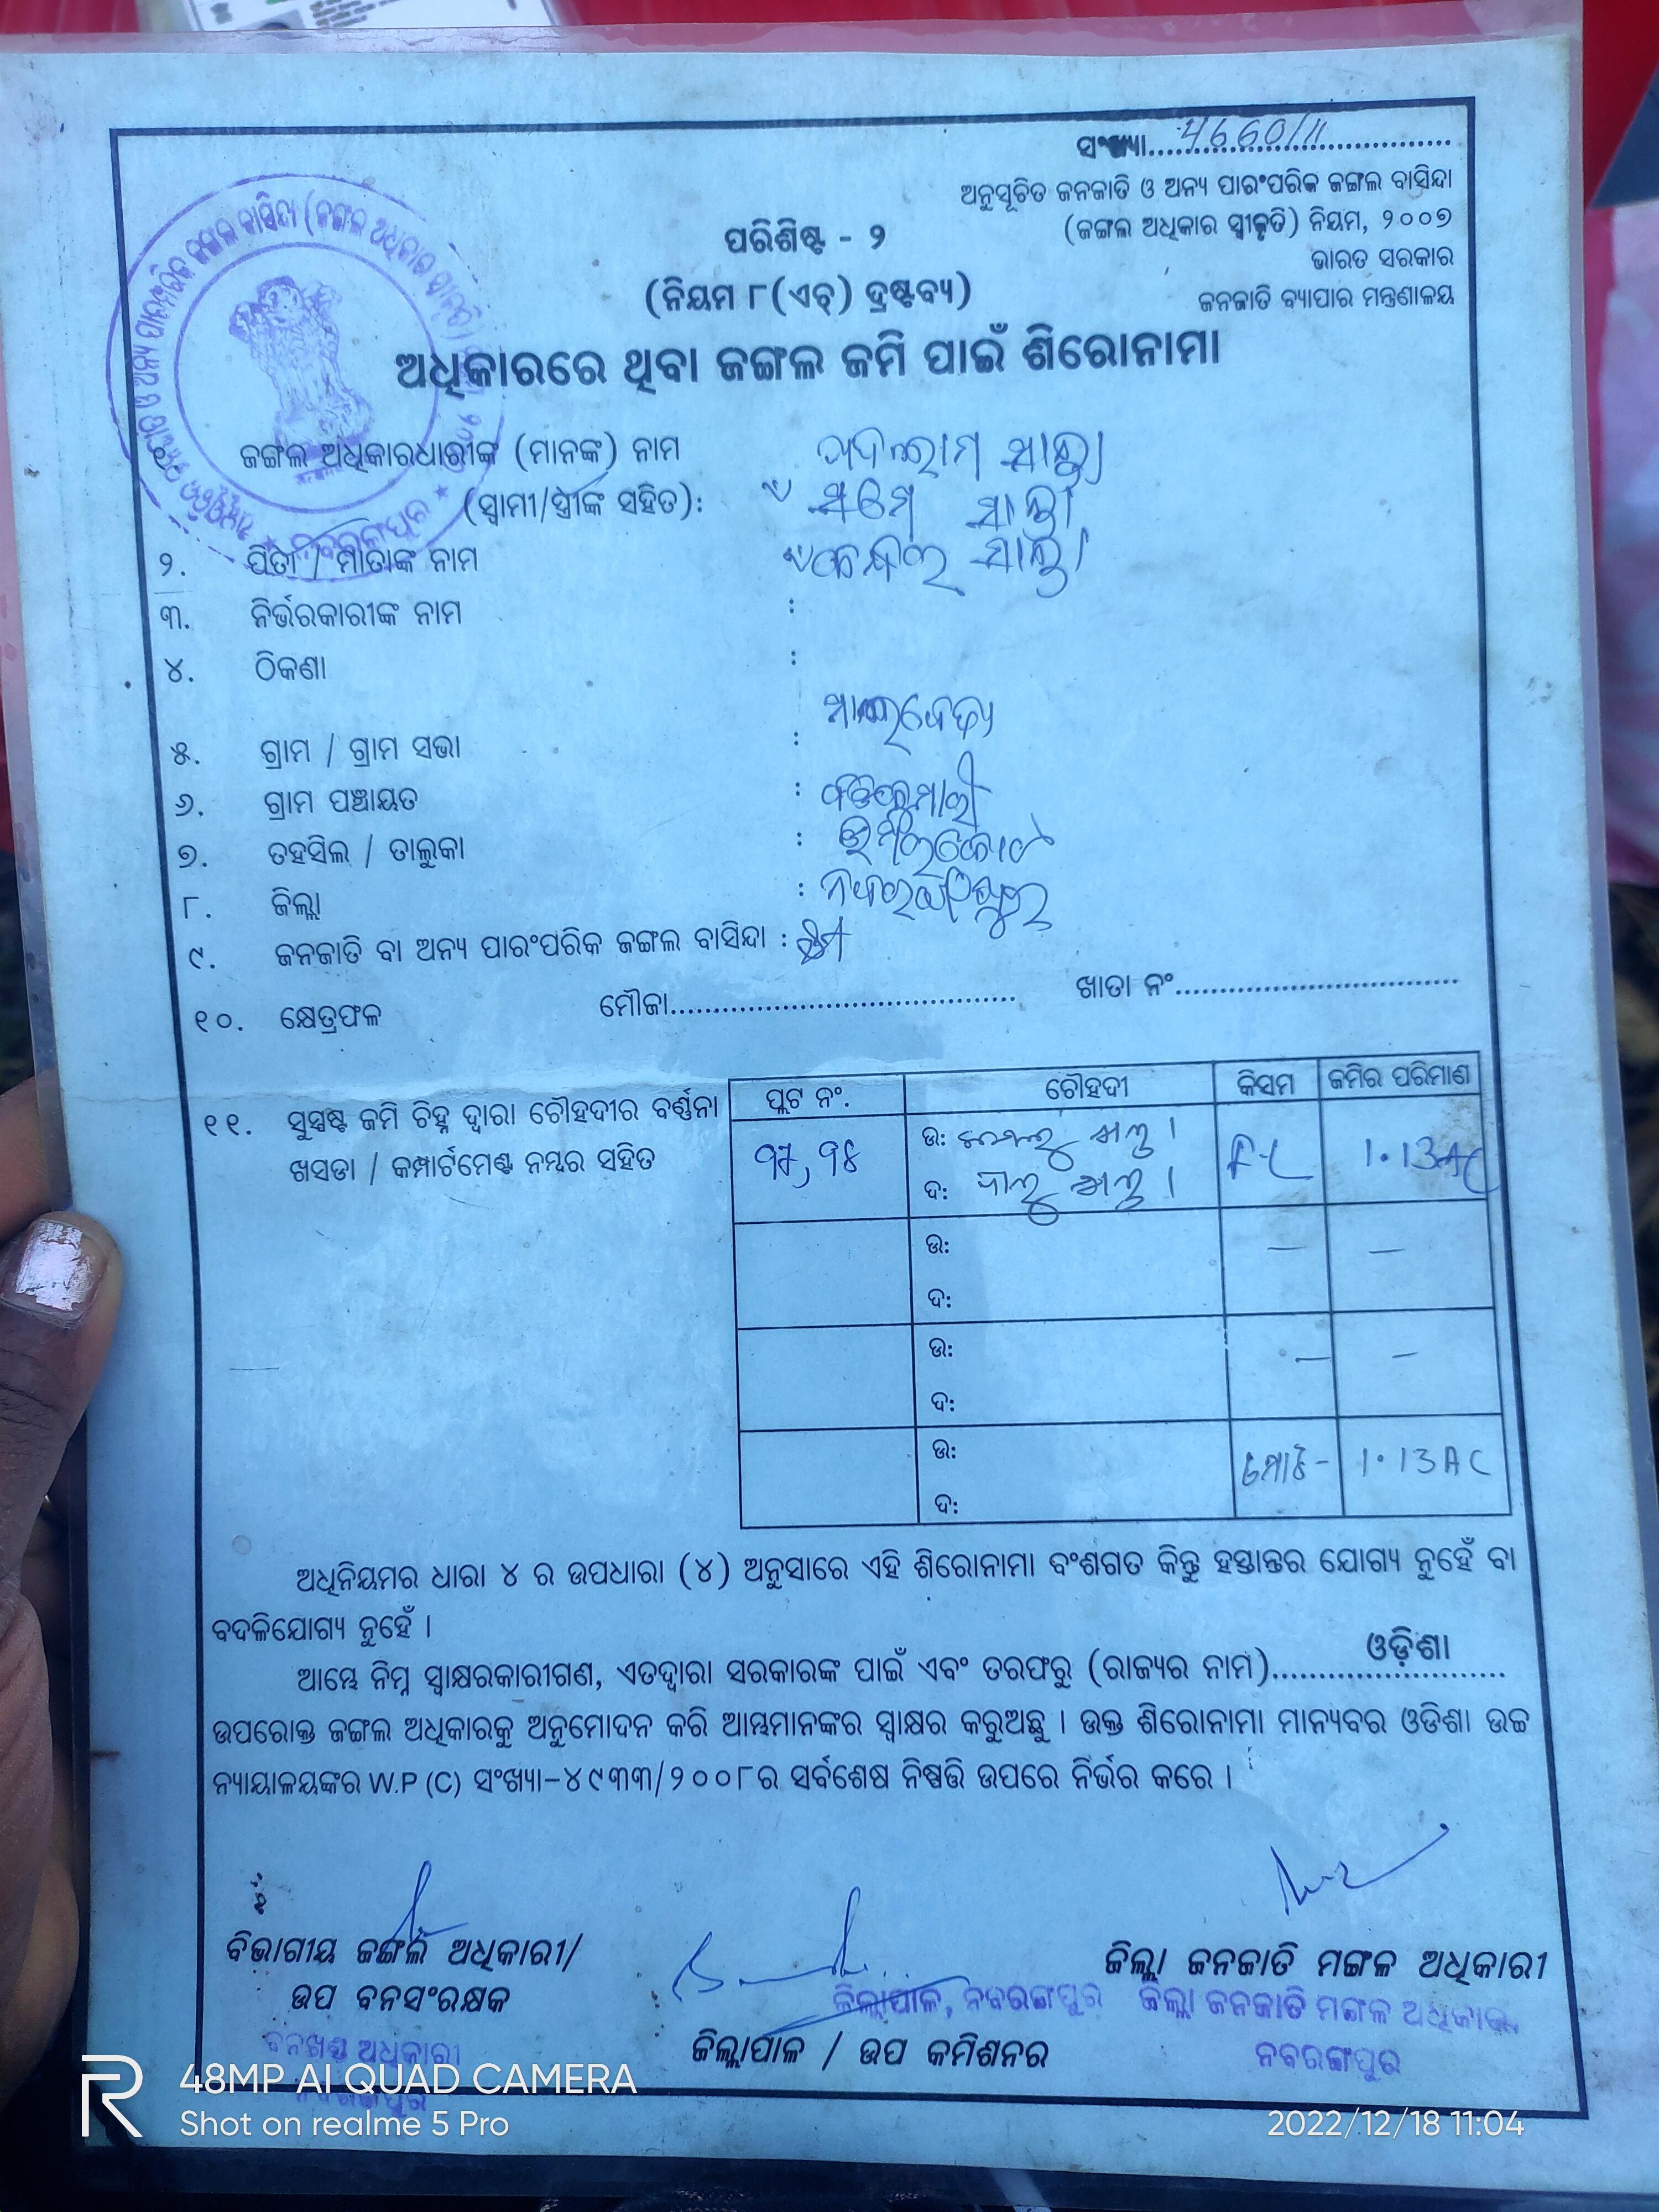 ସଂଖ୍ୟା....4660/11....
ଅନୁସୂଚିତ ଜନଜାତି ଓ ଅନ୍ୟ ପାରଂପରିକ ଜଙ୍ଗଲ ବାସିନ୍ଦା
(ଜଙ୍ଗଲ ଅଧିକାର ସ୍ୱୀକୃତି) ନିୟମ, ୨୦୦୭
ଭାରତ ସରକାର
ଜନଜାତି ବ୍ୟାପାର ମନ୍ତ୍ରଣାଳୟ
ପରିଶିଷ୍ଟ - ୨
(ନିୟମ ୮(ଏଚ୍) ଦ୍ରଷ୍ଟବ୍ୟ)
ଅଧିକାରରେ ଥିବା ଜଙ୍ଗଲ ଜମି ପାଇଁ ଶିରୋନାମା
ଜଙ୍ଗଲ ଅଧିକାରଧାରୀଙ୍କ (ମାନଙ୍କ) ନାମ
(ସ୍ୱାମୀ/ସ୍ତ୍ରୀଙ୍କ ସହିତ):
୨. ପିତା / ମାତାଙ୍କ ନାମ
୩. ନିର୍ଭରକାରୀଙ୍କ ନାମ :
୪. ଠିକଣା :
୫. ଗ୍ରାମ / ଗ୍ରାମ ସଭା :
୬. ଗ୍ରାମ ପଞ୍ଚାୟତ :
୭. ତହସିଲ / ତାଲୁକା : ଉମରକୋଟ
୮. ଜିଲ୍ଲା : ନବରଙ୍ଗପୁର
୯. ଜନଜାତି ବା ଅନ୍ୟ ପାରଂପରିକ ଜଙ୍ଗଲ ବାସିନ୍ଦା :
୧୦. କ୍ଷେତ୍ରଫଳ ମୌଜା.................... ଖାତା ନଂ....................
୧୧. ସୁସ୍ପଷ୍ଟ ଜମି ଚିହ୍ନ ଦ୍ୱାରା ଚୌହଦୀର ବର୍ଣ୍ଣନା
ଖସଡା / କମ୍ପାର୍ଟମେଣ୍ଟ ନମ୍ବର ସହିତ
ପ୍ଲଟ ନଂ. ଚୌହଦୀ କିସମ ଜମିର ପରିମାଣ
ଉ: 1.13AC
ଦ:
ଉ: — —
ଦ:
ଉ: — —
ଦ:
ଉ: ମୋଟ- 1.13AC
ଦ:
ଅଧିନିୟମର ଧାରା ୪ ର ଉପଧାରା (୪) ଅନୁସାରେ ଏହି ଶିରୋନାମା ବଂଶଗତ କିନ୍ତୁ ହସ୍ତାନ୍ତର ଯୋଗ୍ୟ ନୁହେଁ ବା
ବଦଳିଯୋଗ୍ୟ ନୁହେଁ ।
ଆମ୍ଭେ ନିମ୍ନ ସ୍ୱାକ୍ଷରକାରୀଗଣ, ଏତଦ୍ୱାରା ସରକାରଙ୍କ ପାଇଁ ଏବଂ ତରଫରୁ (ରାଜ୍ୟର ନାମ)....ଓଡ଼ିଶା....
ଉପରୋକ୍ତ ଜଙ୍ଗଲ ଅଧିକାରକୁ ଅନୁମୋଦନ କରି ଆମ୍ଭମାନଙ୍କର ସ୍ୱାକ୍ଷର କରୁଅଛୁ । ଉକ୍ତ ଶିରୋନାମା ମାନ୍ୟବର ଓଡିଶା ଉଚ୍ଚ
ନ୍ୟାୟାଳୟଙ୍କର W.P (C) ସଂଖ୍ୟା-୪୯୩୩/୨୦୦୮ର ସର୍ବଶେଷ ନିଷ୍ପତ୍ତି ଉପରେ ନିର୍ଭର କରେ ।
ବିଭାଗୀୟ ଜଙ୍ଗଲ ଅଧିକାରୀ/
ଉପ ବନସଂରକ୍ଷକ
ବନଖଣ୍ଡ ଅଧିକାରୀ
ନବରଙ୍ଗପୁର
ଜିଲ୍ଲାପାଳ, ନବରଙ୍ଗପୁର
ଜିଲ୍ଲାପାଳ / ଉପ କମିଶନର
ଜିଲ୍ଲା ଜନଜାତି ମଙ୍ଗଳ ଅଧିକାରୀ
ଜିଲ୍ଲା ଜନଜାତି ମଙ୍ଗଳ ଅଧିକାରୀ
ନବରଙ୍ଗପୁର
48MP AI QUAD CAMERA
Shot on realme 5 Pro
2022/12/18 11:04